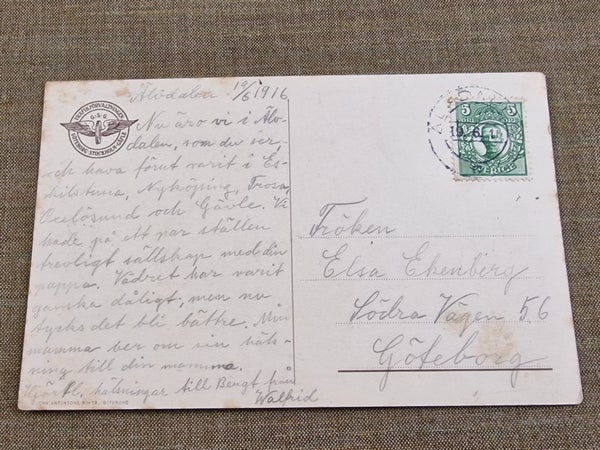 Älvdalen 19/6 1916
Nu äro vi i Älv-
dalen, som du ser,
och hava förut varit i Es-
kilstuna, Nyköping, Trosa,
Oxelösund och Gävle. Vi
hade på ett par ställen
trevligt sällskap med din
pappa. Vädret har varit
ganska dåligt, men nu
tycks det bli bättre. Min
mamma ber om en häls-
ning till din mamma.
Hjärtl. hälsningar till Bengt från
Walfrid
TRAFIKFÖRVALTNINGEN
G.S.G.
GÖTEBORG-STOCKHOLM-GÄFLE
5
5
ÖRE
SVERIGE
Fröken
Elsa Ekenberg
Södra Vägen 56
Göteborg